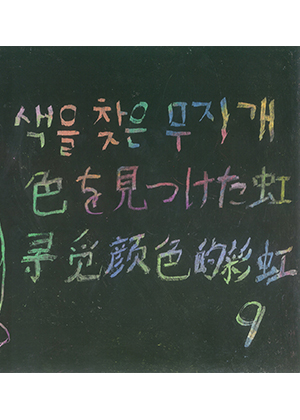 색을 찾은 무지개
色を見つけた虹
寻觅颜色的彩虹
9